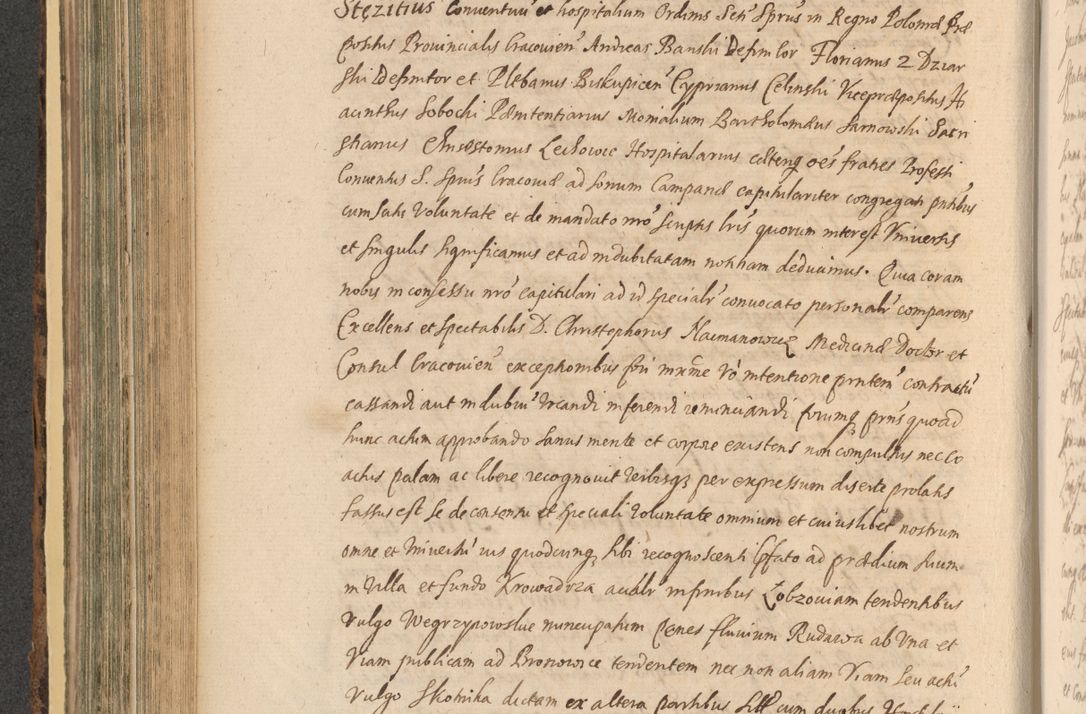 Stęzitius Conventuū et hospitalium Ordinis Sctī Sprūs in Regno Poloniæ Præ
positus Provincialis Cracovieñ Andreas Banski Definitor Florianus 2 Dziar
ski Definitor et Plebanus Biskupicen Cyprianus Celinski Vicepræpositus Hi
acinthus Sobocki Pænitentiarius Monialium Bartholomæus Sarnowski Sacri
stianus Chrisostomus Lechowic Hospitalarius cæteriq oēs fratres Professi
Conventus S. Spūs Cracoviæ ad sonum Campanæ capitulariter congregati pntibus
cum Scitu Voluntate et de mandato nrō scriptis lris quorum interest Universis
et singulis significamus et ad indubitatam notitiam deducimus. Quia coram
nobis in consessu nrō capitulari ad id specialr convocato personalr comparens
Excellens et spectabilis D. Christophorus Naimanowicz Medicinæ Doctor et
Consul Cracovien exceptionibus fori maxime vō intentione pntem contractū
cassandi aut in dubiū vocandi inferendi renunciandi forumq prns quoad
hunc actum approbando Sanus mente et corpore existens non compulsus nec co
actus palam ac libere recognovit verbisq per expressum diserte prolatis
fassus est se de consensu et speciali voluntate omnium et cuiuslibet nostrum
omne et Universū ius quodcunq sibi recognoscenti Spectō ad prædium suum
in Villa et fundo Krowadrza actualr infinibus Lobzoviam tendentibus
vulgo Wegrzynowskie nuncupatum penes fluvium Rudawa ab Una et
Viam publicam ad Bronowice tendentem nec non aliam Viam seu acti
vulgo Skotnika dictam ex altera partibus sitū cum duabus